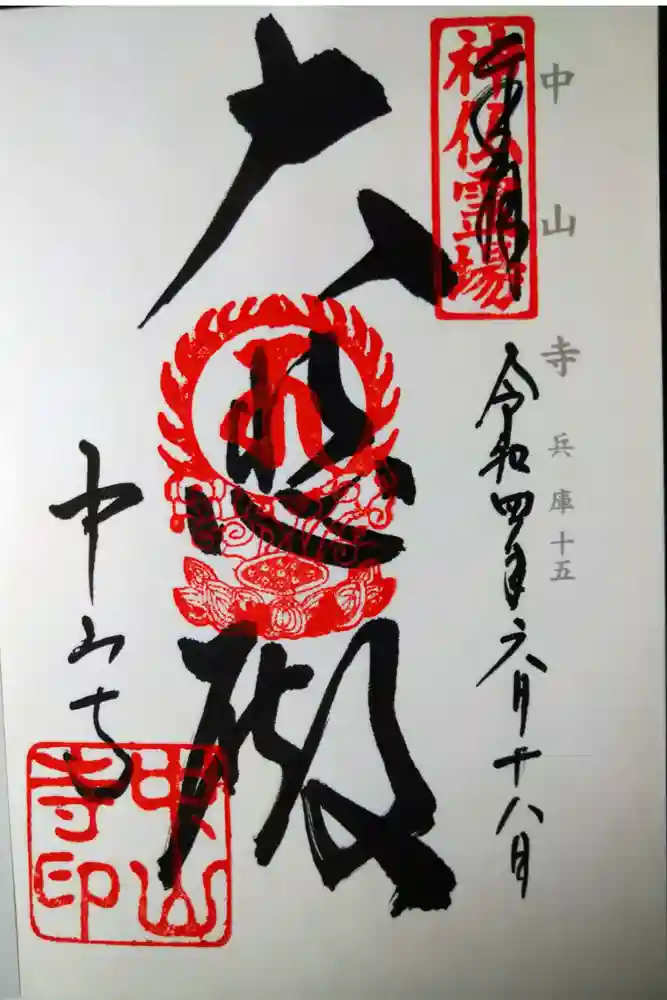 中山寺 兵庫十五
神仏霊場
令和四年六月十八日
大悲殿
中山寺
中山寺印